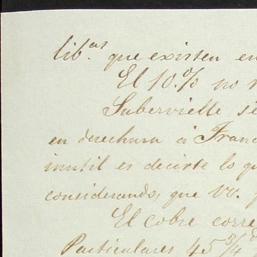 lib.as que existen en
El 10.% no
Subervielle
en derechura à Franc
inutil es decirte lo qu
considerando, que VV.
El cobre corre
Particulares 45 3/4